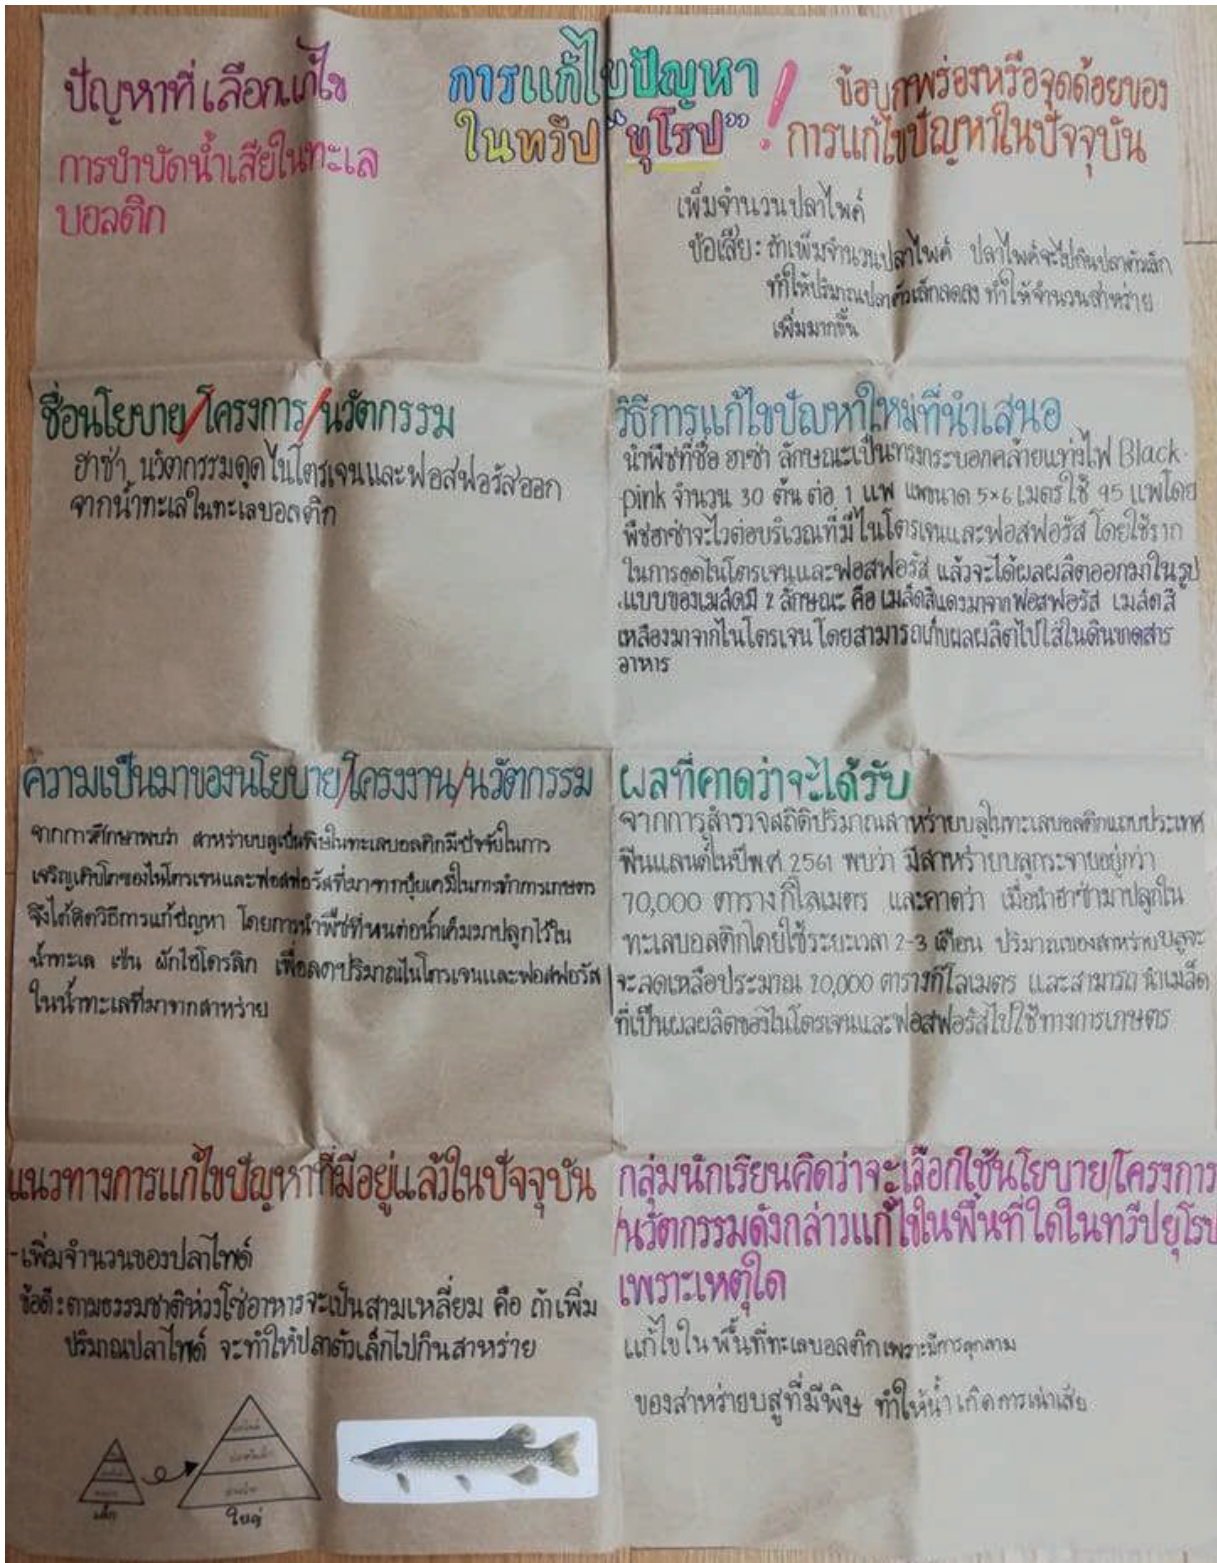 การแก้ไขปัญหา
ในทวีป "ยุโรป" !
ปัญหาที่เลือกแก้ไข
การบำบัดน้ำเสียในทะเล
บอลติก
ข้อบกพร่องหรือจุดด้อยของ
การแก้ไขปัญหาในปัจจุบัน
เพิ่มจำนวนปลาไพค์
ข้อเสีย: ถ้าเพิ่มจำนวนปลาไพค์ ปลาไพค์จะไปกินปลาตัวเล็ก
ทำให้ปริมาณปลาตัวเล็กลดลง ทำให้จำนวนสาหร่าย
เพิ่มมากขึ้น
ชื่อนโยบาย/โครงการ/นวัตกรรม
ฮาซ่า นวัตกรรมดูดไนโตรเจนและฟอสฟอรัสออก
จากน้ำทะเลในทะเลบอลติก
วิธีการแก้ไขปัญหาใหม่ที่นำเสนอ
นำพืชที่ชื่อ ฮาซ่า ลักษณะเป็นทรงกระบอกคล้ายแท่งไฟ Black-
pink จำนวน 30 ต้น ต่อ 1 แพ แพขนาด 5×6 เมตร ใช้ 95 แพโดย
พืชฮาซ่าจะไวต่อบริเวณที่มีไนโตรเจนและฟอสฟอรัส โดยใช้ราก
ในการดูดไนโตรเจนและฟอสฟอรัส แล้วจะได้ผลผลิตออกมาในรูป
แบบของเมล็ดมี 2 ลักษณะ คือ เมล็ดสีแดงมาจากฟอสฟอรัส เมล็ดสี
เหลืองมาจากไนโตรเจน โดยสามารถเก็บผลผลิตไปใส่ในดินขาดสาร
อาหาร
ความเป็นมาของนโยบาย/โครงงาน/นวัตกรรม
จากการศึกษาพบว่า สาหร่ายบลูเป็นพิษในทะเลบอลติกมีปัจจัยในการ
เจริญเติบโตของไนโตรเจนและฟอสฟอรัสที่มาจากปุ๋ยเคมีในการทำการเกษตร
จึงได้คิดวิธีการแก้ปัญหา โดยการนำพืชที่ทนต่อน้ำเค็มมาปลูกไว้ใน
น้ำทะเล เช่น ผักไฮโดรลิก เพื่อลดปริมาณไนโตรเจนและฟอสฟอรัส
ในน้ำทะเลที่มาจากสาหร่าย
ผลที่คาดว่าจะได้รับ
จากการสำรวจสถิติปริมาณสาหร่ายบลูในทะเลบอลติกแถบประเทศ
ฟินแลนด์ในปีพ.ศ. 2561 พบว่า มีสาหร่ายบลูกระจายอยู่กว่า
70,000 ตารางกิโลเมตร และคาดว่า เมื่อนำฮาซ่ามาปลูกใน
ทะเลบอลติกโดยใช้ระยะเวลา 2-3 เดือน ปริมาณของสาหร่ายบลูจะ
จะลดเหลือประมาณ 20,000 ตารางกิโลเมตร และสามารถนำเมล็ด
ที่เป็นผลผลิตของไนโตรเจนและฟอสฟอรัสไปใช้ทางการเกษตร
แนวทางการแก้ไขปัญหาที่มีอยู่แล้วในปัจจุบัน
-เพิ่มจำนวนของปลาไพค์
ข้อดี: ตามธรรมชาติห่วงโซ่อาหารจะเป็นสามเหลี่ยม คือ ถ้าเพิ่ม
ปริมาณปลาไพค์ จะทำให้ปลาตัวเล็กไปกินสาหร่าย
เล็ก
ใหญ่
กลุ่มนักเรียนคิดว่าจะเลือกใช้นโยบาย/โครงการ
/นวัตกรรมดังกล่าวแก้ไขในพื้นที่ใดในทวีปยุโรป
เพราะเหตุใด
แก้ไขในพื้นที่ทะเลบอลติกเพราะมีการลุกลาม
ของสาหร่ายบลูที่มีพิษ ทำให้น้ำเกิดการเน่าเสีย